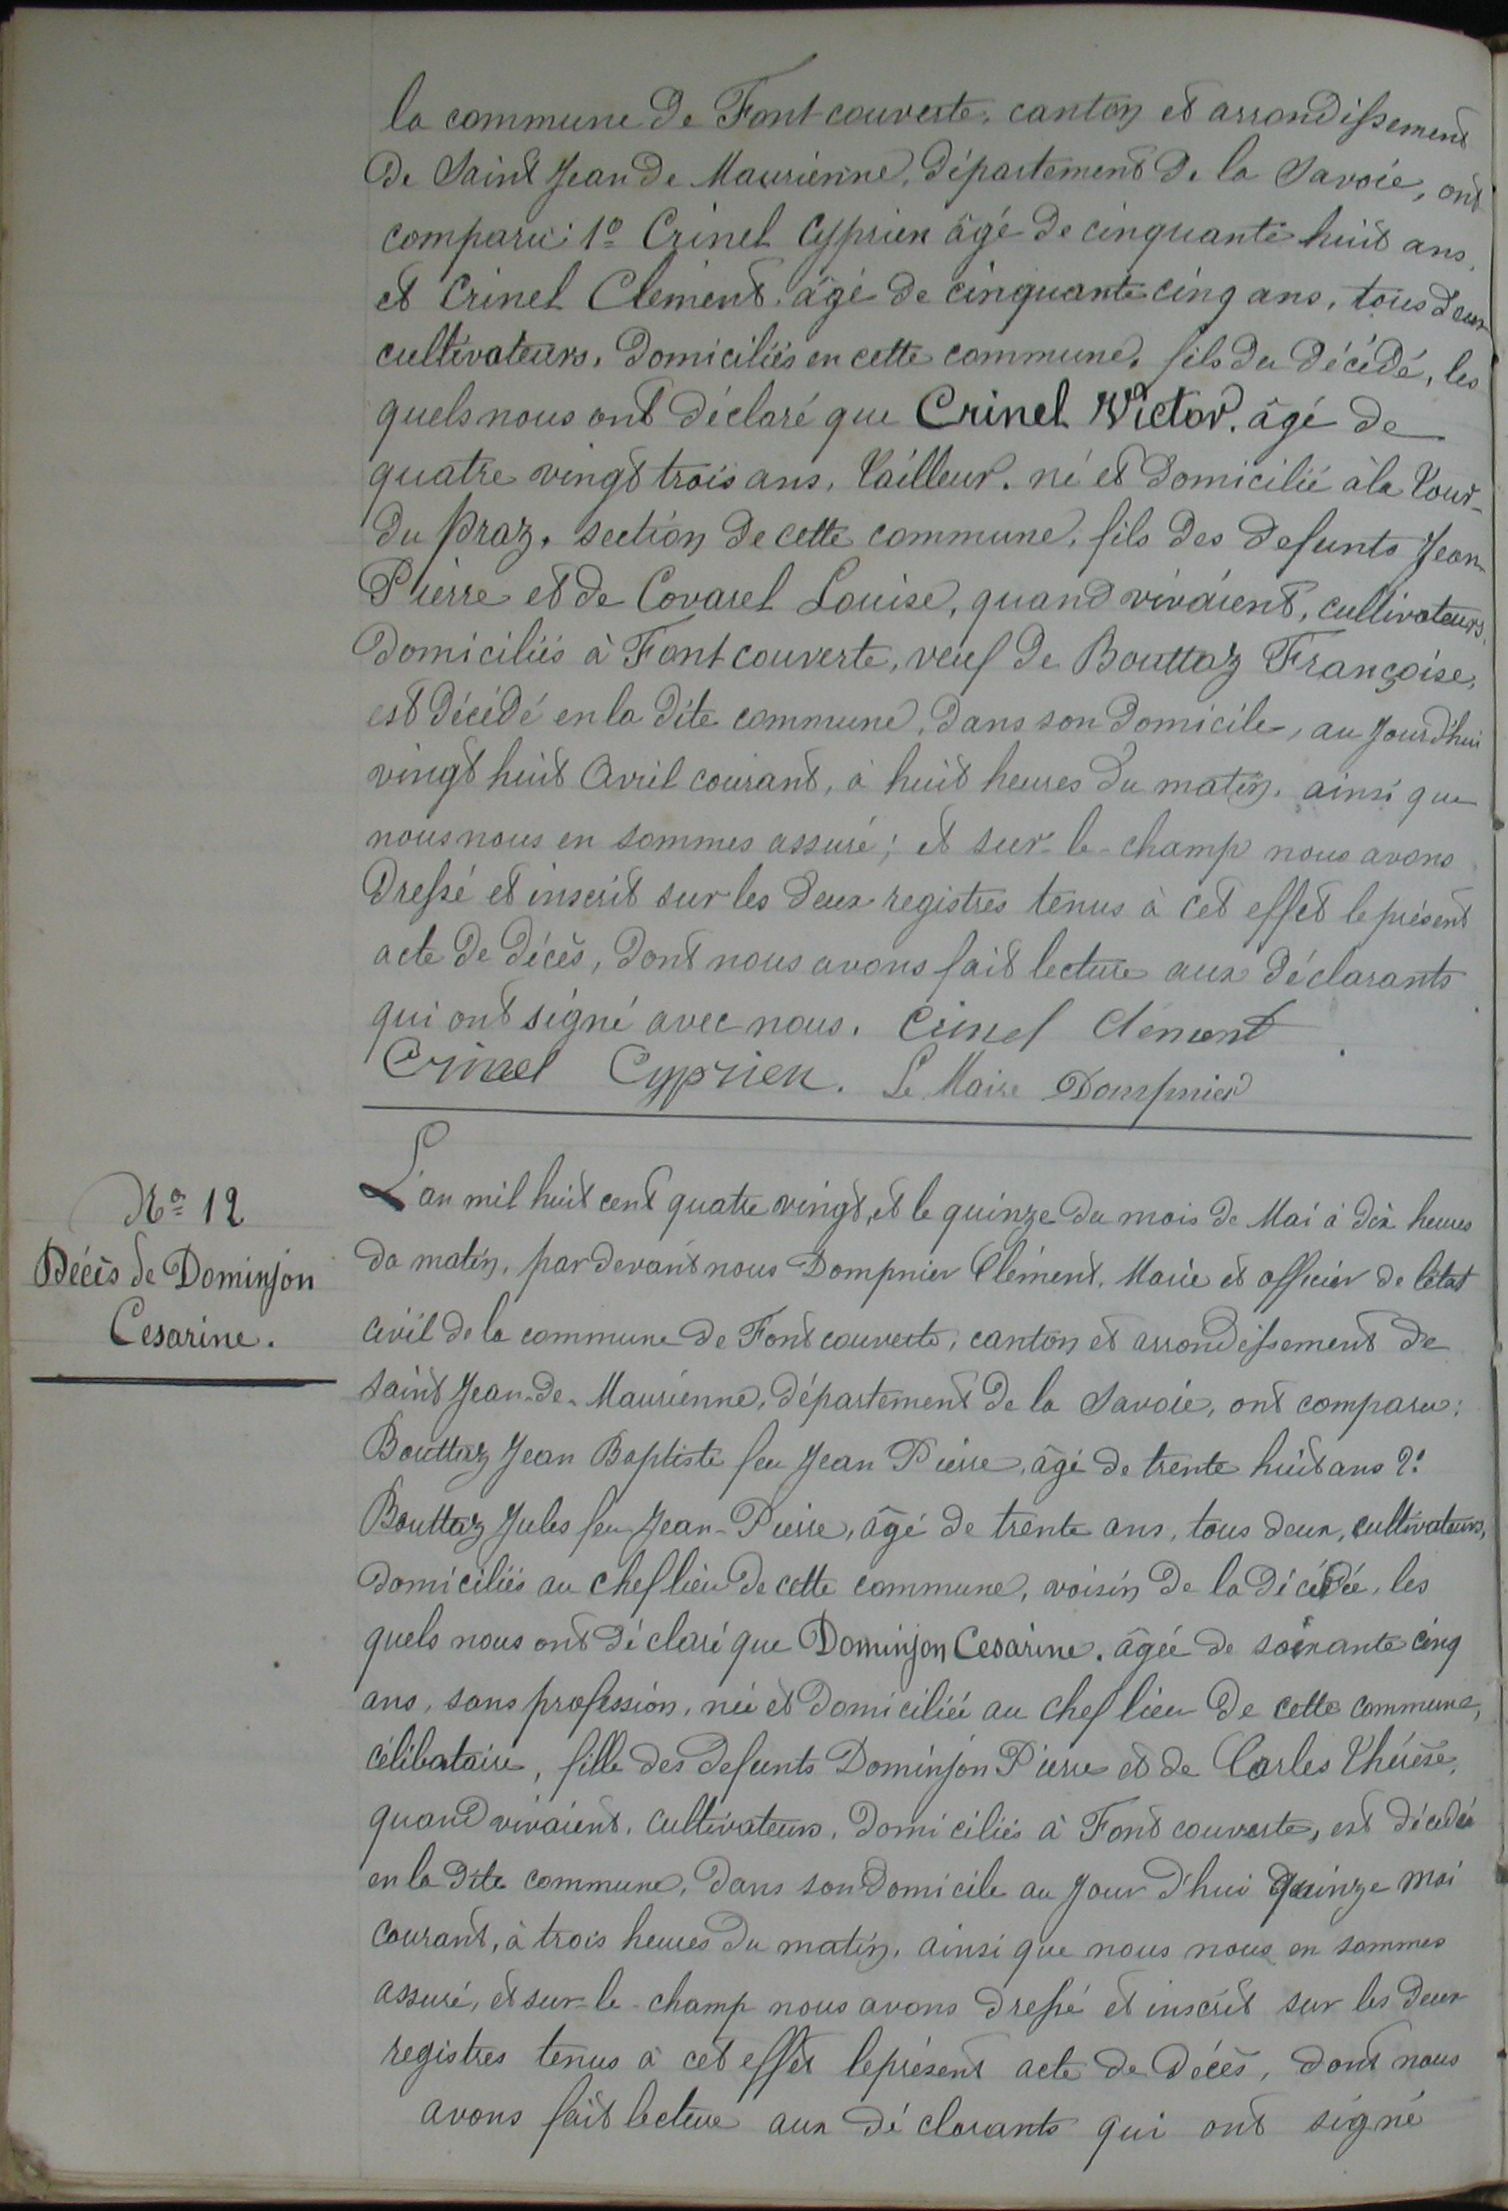 la commune de Fontcouverte, canton et arrondissement
de Saint Jean de Maurienne, département de la Savoie, ont
comparu: 1º Crinel Cyprien âgé de cinquante huit ans,
et Crinel Clément, âgé de cinquante cinq ans, tous deux
cultivateurs, domiciliés en cette commune, fils du décédé, les
quels nous ont déclaré que Crinel Victor, âgé de
quatre vingt trois ans, tailleur, né et domicilié à la Tour-
du Praz, section de cette commune, fils des defunts Jean-
Pierre et de Covarel Louise, quand vivaient, cultivateurs,
domiciliés à Fontcouverte, veuf de Bouttaz Françoise,
est décédé en la dite commune, dans son domicile, au jourd'hui
vingt huit Avril courant, à huit heures du matin, ainsi que
nous nous en sommes assuré; et sur-le-champ nous avons
dressé et inscrit sur les deux registres tenus à cet effet le présent
acte de décès, dont nous avons fait lecture aux déclarants
qui ont signé avec nous. Crinel Clément
Crinel Cyprien. Le Maire Dompnier
Nº 12
Décès de Dominjon
Cesarine.
L'an mil huit cent quatre vingt, et le quinze du mois de Mai à dix heures
do matin, par devant nous Dompnier Clément, Maire et officier de l'état
civil de la commune de Fontcouverte, canton et arrondissement de
Saint Jean-de-Maurienne, département de la Savoie, ont comparu:
Bouttaz Jean Baptiste feu Jean Pierre, âgé de trente huit ans 2º
Bouttaz Jules feu Jean-Pierre, âgé de trente ans, tous deux, cultivateurs,
domiciliés au chef lieu de cette commune, voisin de la décédée, les
quels nous ont déclaré que Dominjon Cesarine, âgée de soixante cinq
ans, sans profession, née et domiciliée au chef lieu de cette commune,
célibataire, fille des defunts Dominjon Pierre et de Carles Thérèse,
quand vivaient, cultivateurs, domiciliés à Fontcouverte, est décédée
en la dite commune, dans son domicile au jour d'hui quinze mai
courant, à trois heures du matin, ainsi que nous nous en sommes
assuré, et sur-le-champ nous avons dressé et inscrit sur les deux
registres tenus à cet effet le présent acte de décès, dont nous
avons fait lecture aux déclarants qui ont signé